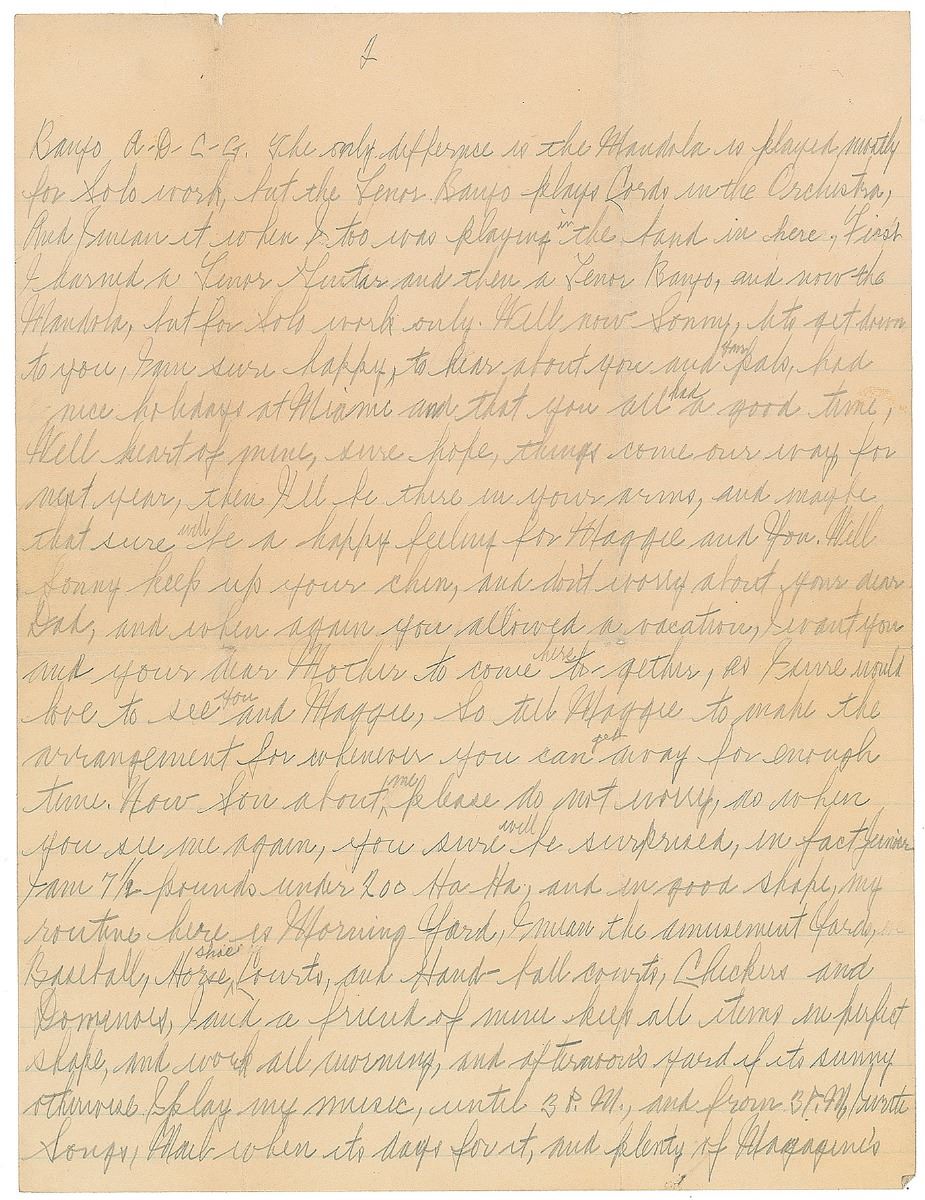 2
Banjo A-D-C-G. The only differnce is the Mandola is played mostly
for Solo work, but the Tenor Banjo plays Cords in the Orchestra,
And I mean it when I too was playing in the band in here, First
I learned a Tenor Guitar and then a Tenor Banjo, and now the
Mandola, but for Solo work only. Well now Sonny, lets get down
to you, I am sure happy, to hear about you and your pals, had
nice holidays at Miami and that you all had a good time,
Well heart of mine, sure hope, things come our way for
next year, then I'll be there in your arms, and maybe
that sure will be a happy feeling for Maggie and You. Well
Sonny keep up your chin, and don't worry about your dear
Dad, and when again you allowed a vacation, I want you
and your dear Mother to come here to gether, as I sure would
love to see you and Maggie, So tell Maggie to make the
arrangement for whenever you can get away for enough
time. Now Son about, me please do not worry, as when
you see me again, you sure will be surprised, in fact Junior
I am 7½ pounds under 200 Ha Ha, and in good shape, my
routine here is Morning Yard, I mean the amusement Yards,
Baseball, Horse shoe Courts, and Hand-ball courts, Checkers and
Dominoes, I and a friend of mine keep all items in perfect
shape, and work all morning, and afternoon's yard if its sunny
otherwise I play my music, until 3 P.M., and from 3 P.M. I write
Songs, Mail when its days for it, and plenty of Magagine's